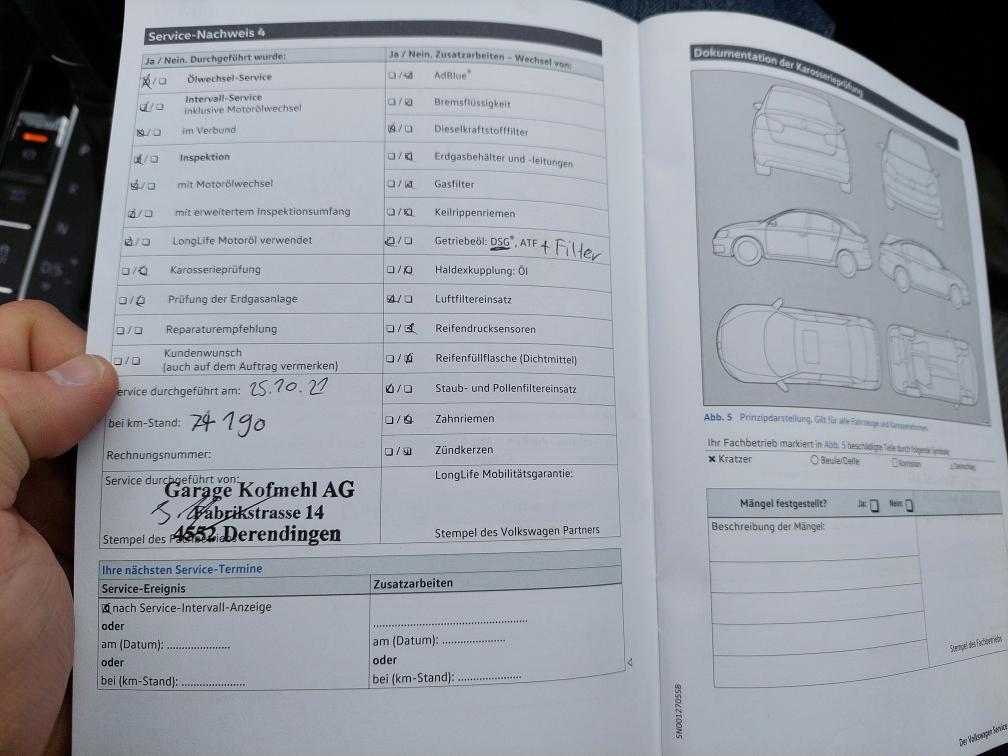 Service-Nachweis 4
Ja / Nein. Durchgeführt wurde:
Ölwechsel-Service
Intervall-Service
inklusive Motorölwechsel
im Verbund
Inspektion
mit Motorölwechsel
mit erweitertem Inspektionsumfang
LongLife Motoröl verwendet
Karosserieprüfung
Prüfung der Erdgasanlage
Reparaturempfehlung
Kundenwunsch
(auch auf dem Auftrag vermerken)
ervice durchgeführt am: 25.10.21
bei km-Stand: 74190
Rechnungsnummer:
Service durchgeführt von:
Garage Kofmehl AG
Fabrikstrasse 14
4552 Derendingen
Stempel des
Ja / Nein. Zusatzarbeiten – Wechsel von:
AdBlue®
Bremsflüssigkeit
Dieselkraftstofffilter
Erdgasbehälter und -leitungen
Gasfilter
Keilrippenriemen
Getriebeöl: DSG®, ATF + Filter
Haldexkupplung: Öl
Luftfiltereinsatz
Reifendrucksensoren
Reifenfüllflasche (Dichtmittel)
Staub- und Pollenfiltereinsatz
Zahnriemen
Zündkerzen
LongLife Mobilitätsgarantie:
Stempel des Volkswagen Partners
Ihre nächsten Service-Termine
Service-Ereignis
nach Service-Intervall-Anzeige
oder
am (Datum): ......................
oder
bei (km-Stand): ......................
Zusatzarbeiten
am (Datum): ......................
oder
bei (km-Stand): ......................
Dokumentation der Karosserieprüfung
Abb. 5 Prinzipdarstellung. Gilt für alle Fahrzeuge und Karosserieformen.
Ihr Fachbetrieb markiert in Abb. 5 beschädigte Teile durch folgende Symbole:
Kratzer
Beule/Delle
Korrosion
Steinschlag
Mängel festgestellt? Ja: Nein:
Beschreibung der Mängel:
Stempel des Fachbetriebs
5N0012705SB
Der Volkswagen Service
P
R
N
D/S